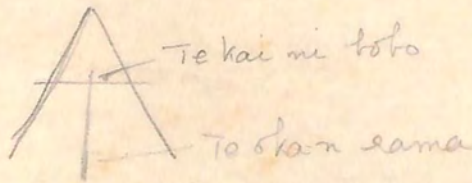 Te kai ni bobo
Te oka-n rama